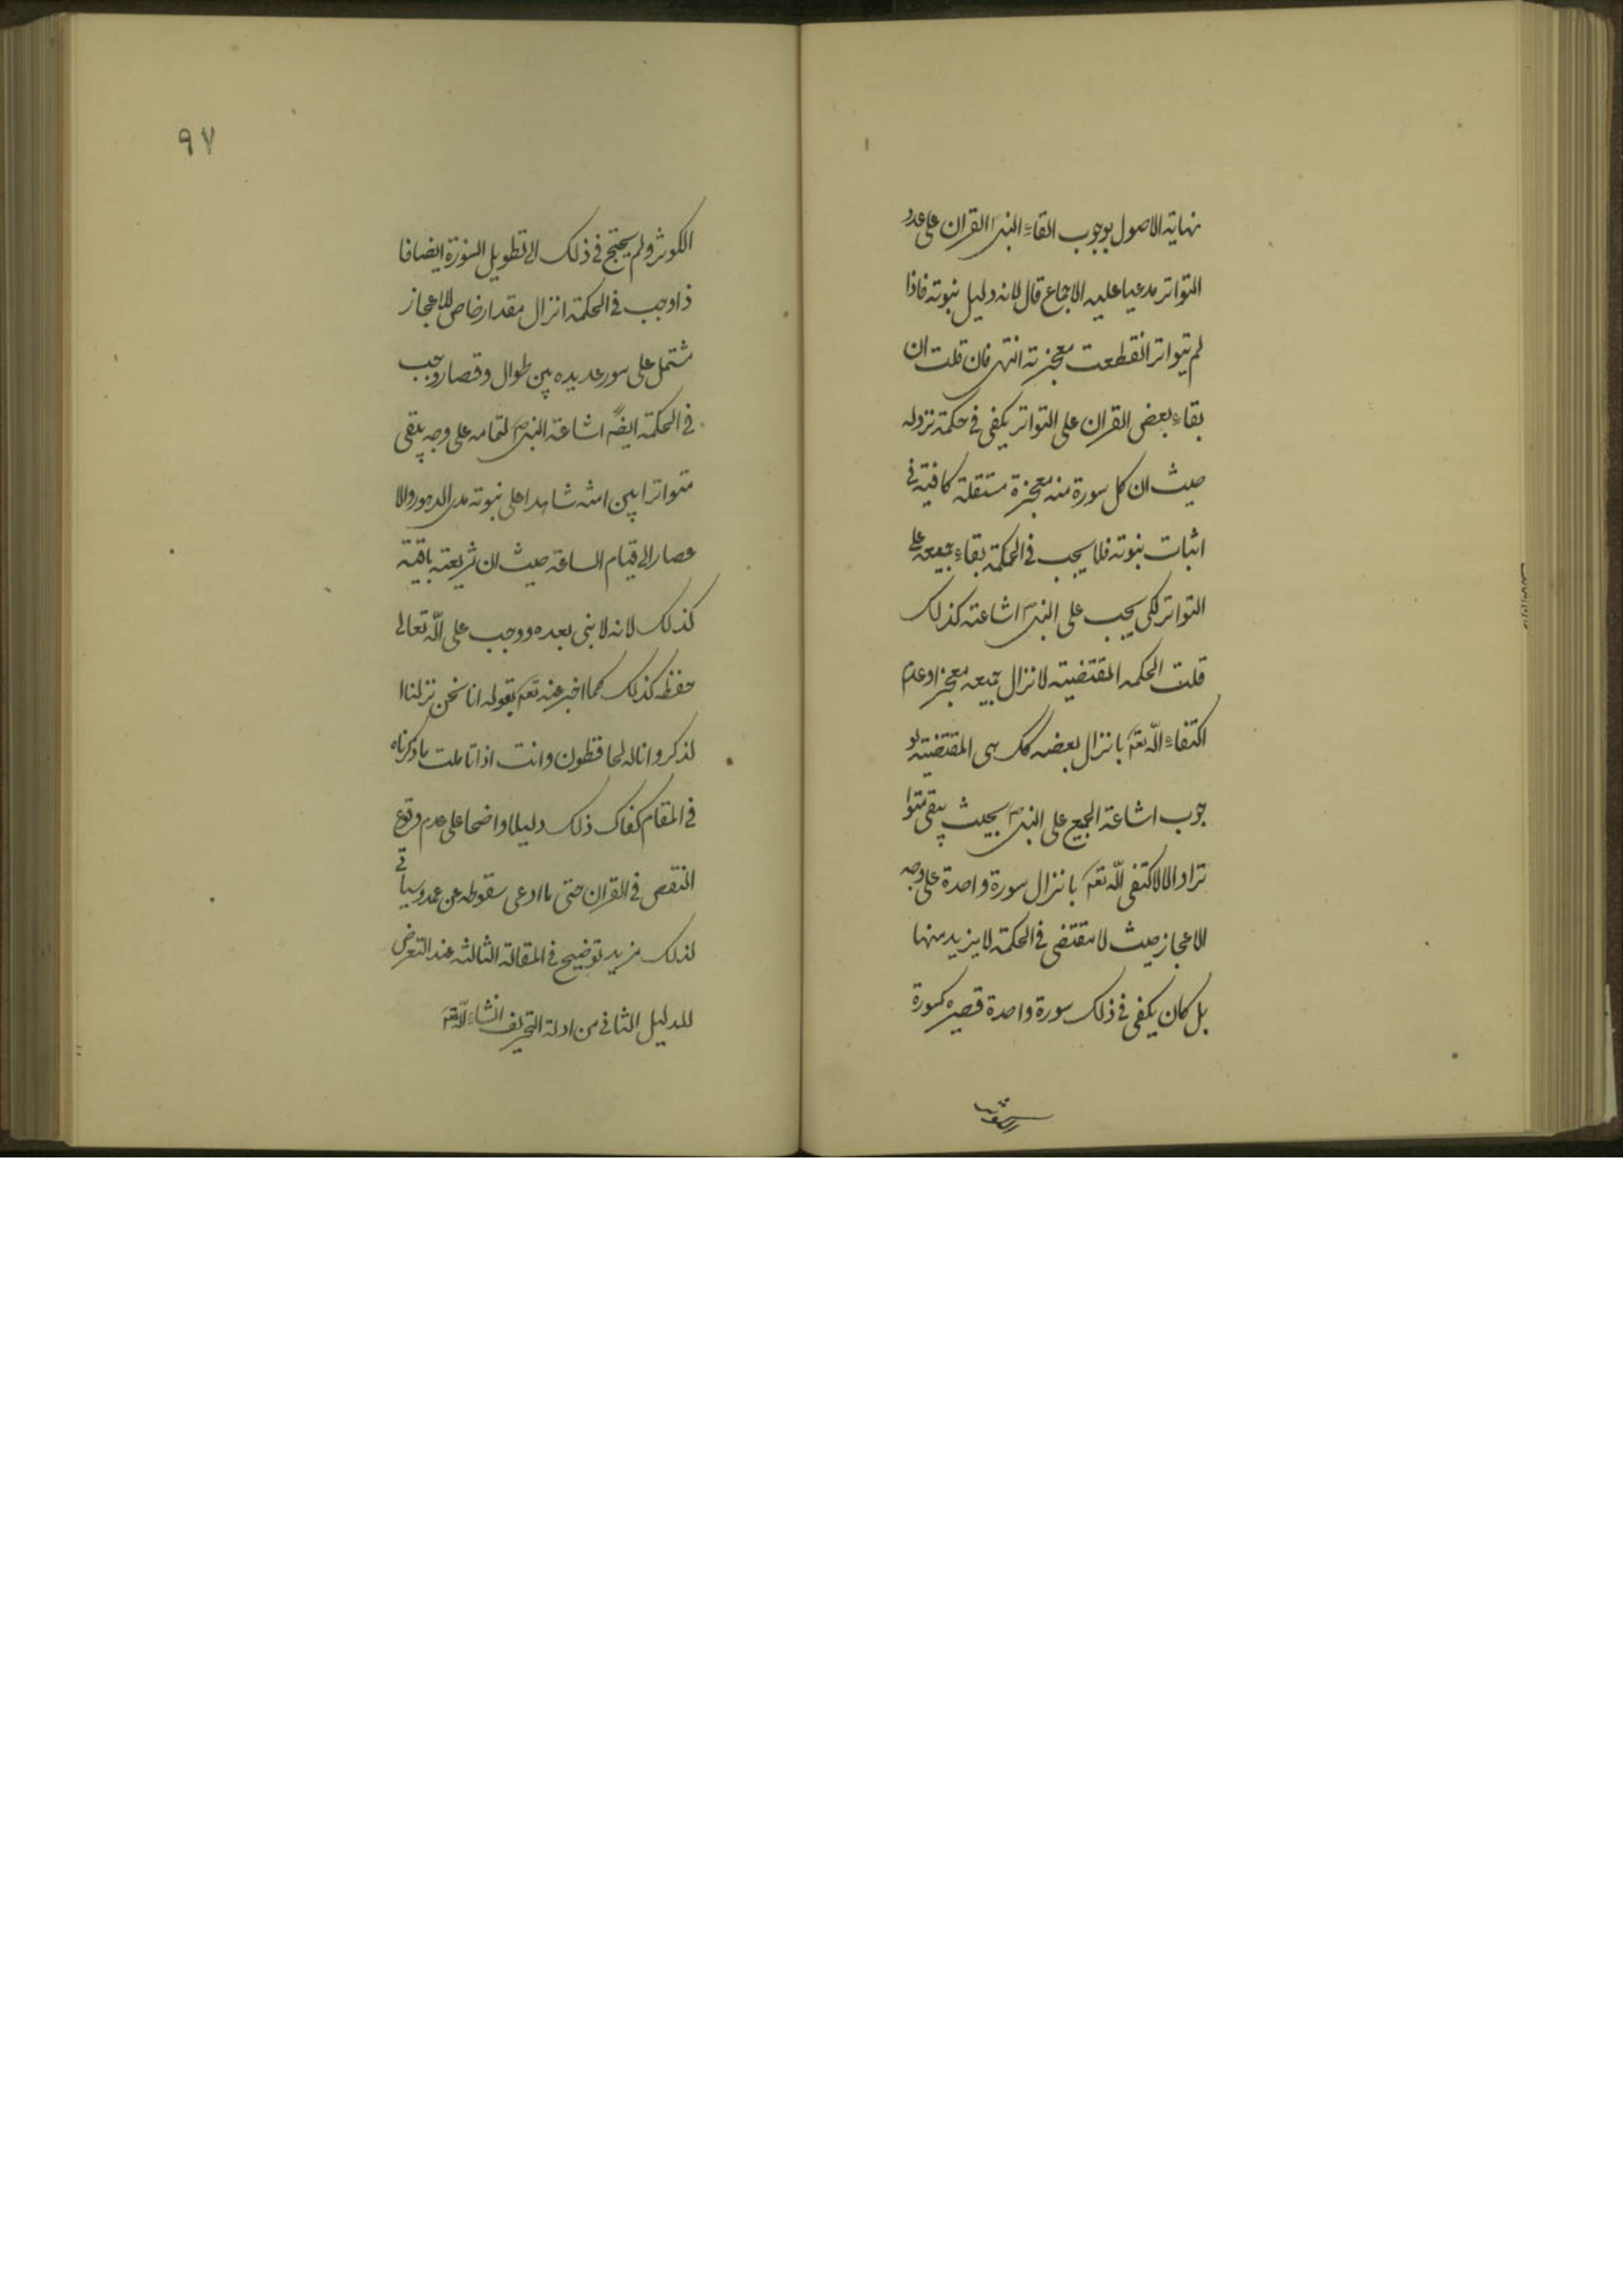 نهاية الاصول بوجوب القاء النبى القران على عدد
التواتر مدعيا عليه الاجماع قال لانه دليل نبوته فاذا
لم يتواتر انقطعت معجزته انتهى فان قلت ان
بقاء بعض القران على التواتر يكفى فى حكمة نزوله
حيث ان كل سورة منه معجزة مستقلة كافية فى
اثبات نبوته فلا يجب فى الحكمة بقاء جميعه على
التواتر لكى يجب على النبى ص اشاعته كذلك
قلت الحكمه المقتضية لانزال جميعه معجزا وعدم
اكتفاء اللّه تعه بانزال بعضه كك هى المقتضية لو
جوب اشاعة الجميع على النبى ص بحيث يبقى متوا
ترا والا لاكتفى اللّه تعه بانزال سورة واحدة على وجه
الاعجاز حيث لا مقتضى فى الحكمة لا يزيد منها
بل كان يكفى فى ذلك سورة واحدة قصيره كسورة
الكوثر
٩٧
الكوثر ولم يحتج فى ذلك الى تطويل السورة ايضا فا
ذا وجب فى الحكمة انزال مقدار خاص للاعجاز
مشتمل على سور عديده بين طوال وقصار وجب
فى الحكمة ايضً اشاعة النبى ص لتمامه على وجه يبقى
متواترا بين امته شاهدا على نبوته مدى الدهور والا
عصار الى قيام الساعة حيث ان شريعته باقية
كذلك لانه لا نبى بعده ووجب على اللّه تعالى
حفظه كذلك كما اخبر عنه تعه بقوله انا نحن نزلنا ا
لذكر وانا له لحافظون وانت اذا تاملت ما ذكرناه
فى المقام كفاك ذلك دليلا واضحا على عدم وقوع
النقص فى القران حتى ما ادعى سقوطه عن عمد وسياتى
لذلك مزيد توضيح فى المقالة الثالثه عند التعرض
للدليل الثانى من ادلة التحريف انشاء اللّه تعه